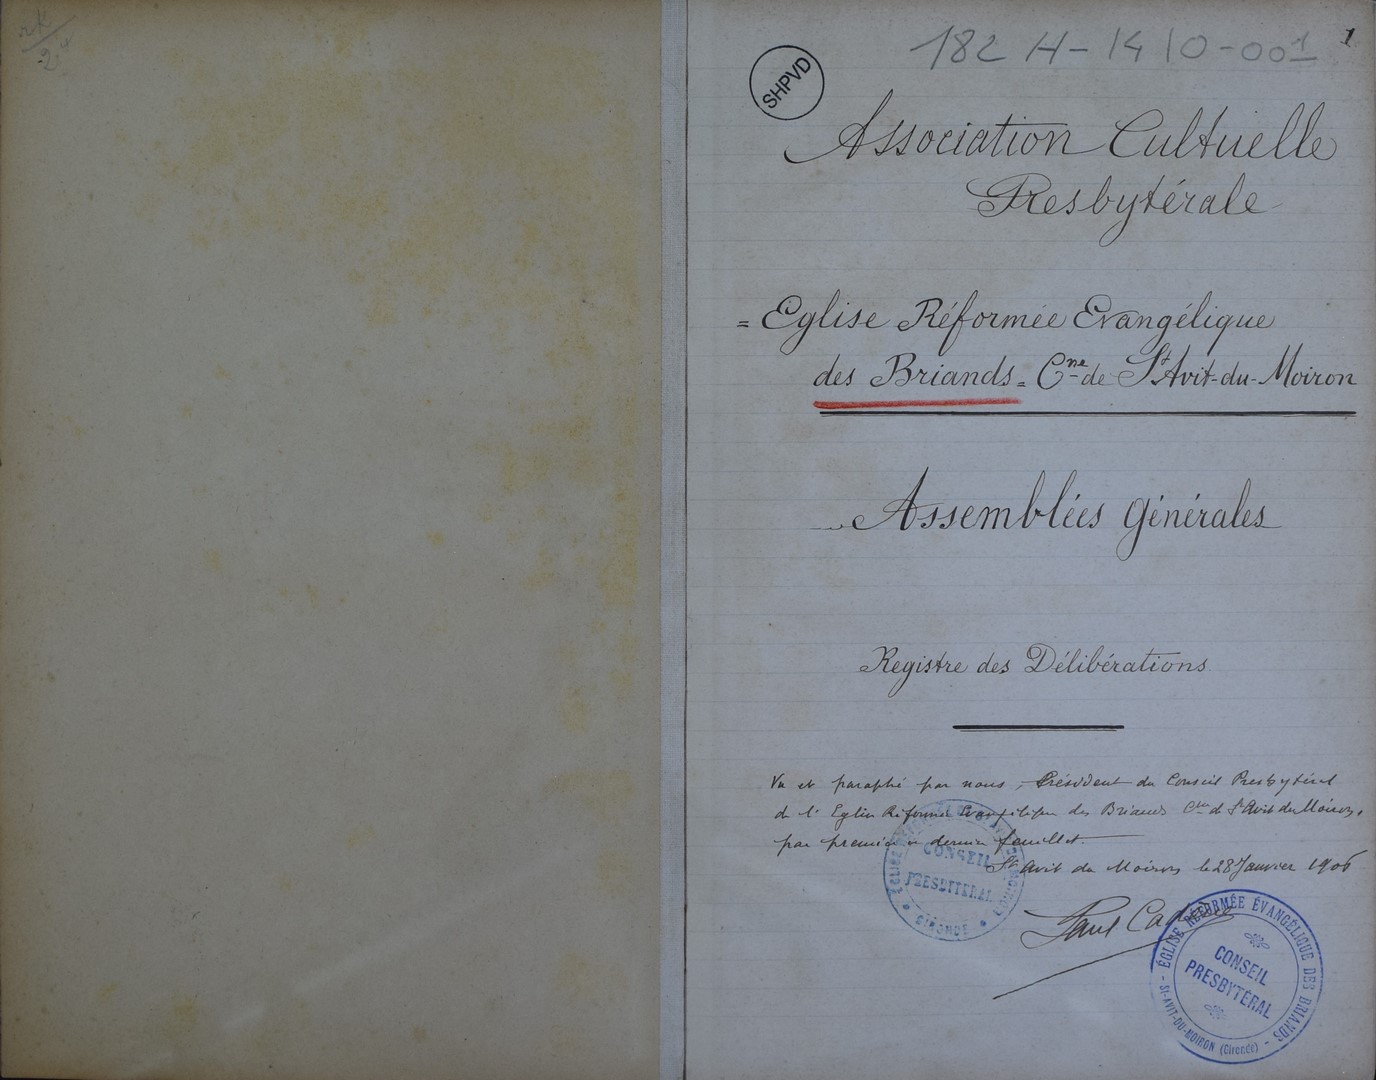 182 H-1410-001
1
SHPVD
Association Cultuelle
Presbytérale
= Eglise Réformée Evangélique
des Briands = Cne de St Avit-du-Moiron
Assemblées générales
Registre des Délibérations
Vu et paraphé par nous, Président du Conseil Presbytéral
de l'Eglise Réformée Evangélique des Briands Cne de St Avit du Moiron,
par premier et dernier feuillet.
St Avit du Moiron le 28 Janvier 1906
CONSEIL
PRESBYTÉRAL
GIRONDE
Paul
ÉGLISE RÉFORMÉE ÉVANGÉLIQUE DES BRIANDS
CONSEIL
PRESBYTÉRAL
ST-AVIT-DU-MOIRON (Gironde)